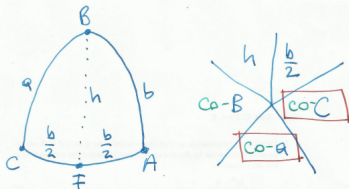 B
a
h
b
b/2
b/2
C
F
A
h
b/2
co-B
co-C
co-a